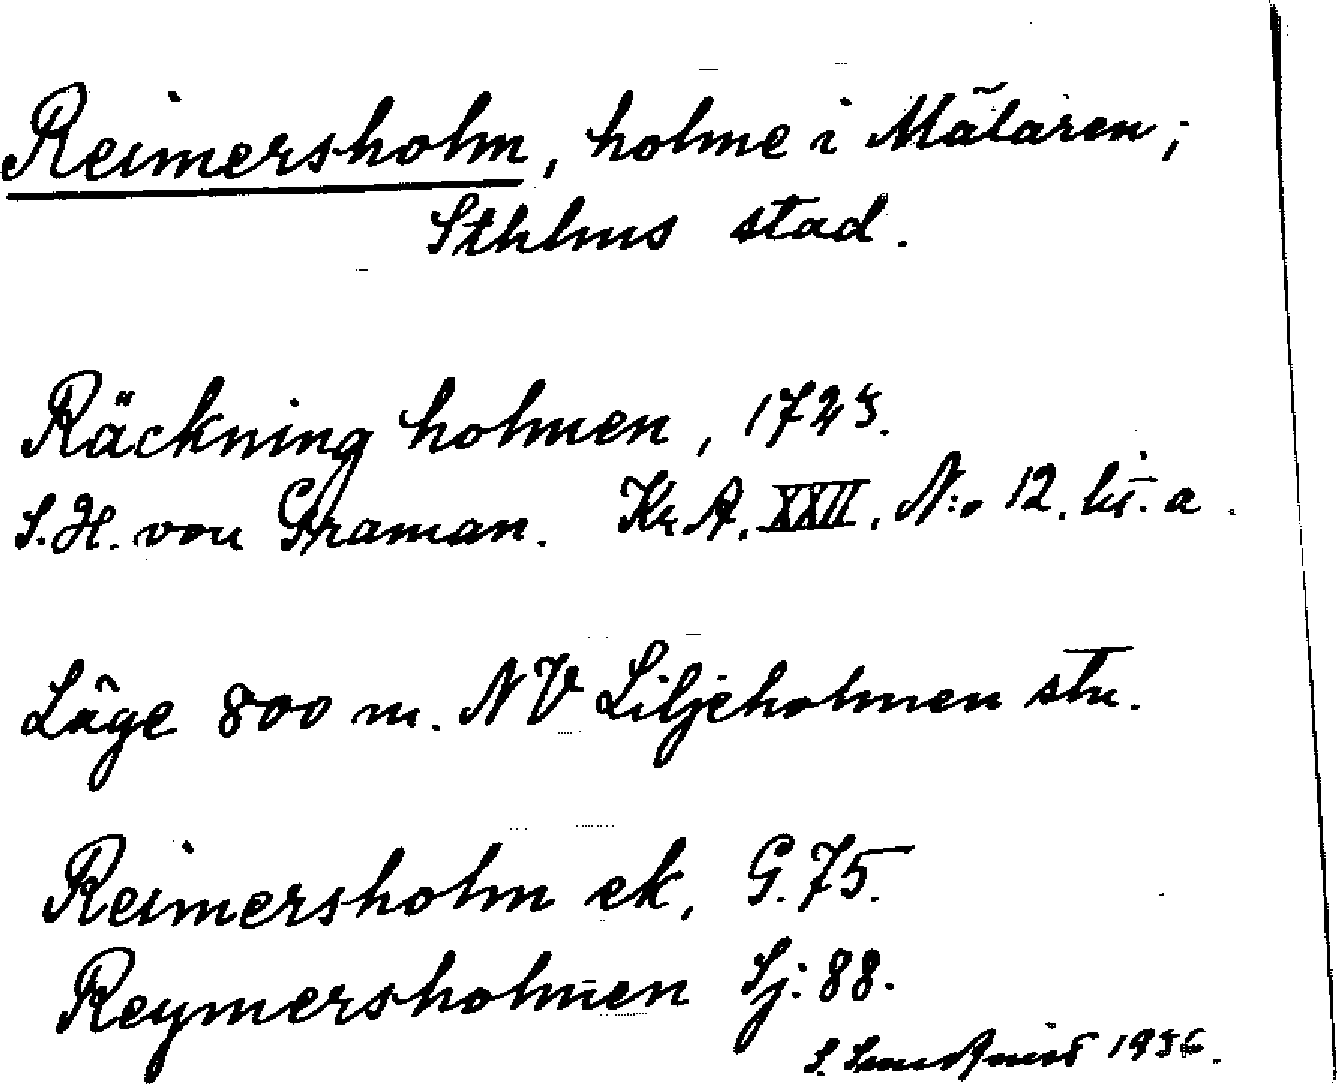 Reimersholm, holme i Mälaren;
Sthlms stad.
Räckning holmen, 1723.
S.H. von Graman. Kr.A. XXII. N:o 12. lit. a.
Läge 800 m. NV Liljeholmen stn.
Reimersholm ek, G.75.
Reymersholmen Sj:88.
S. 1936.